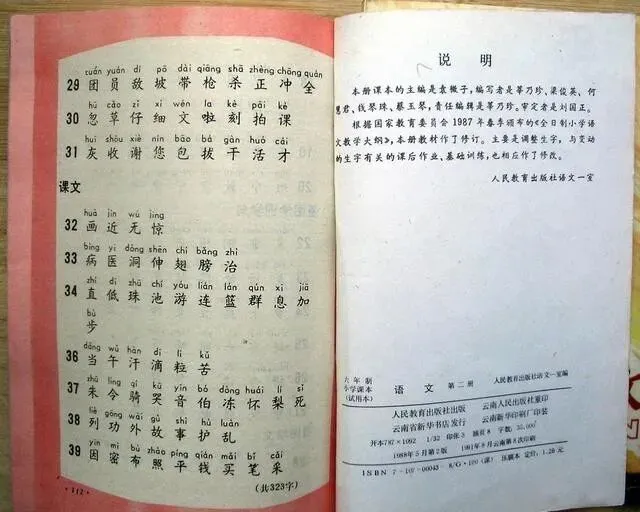 tuán yuán dí pō dài qiāng shā zhèng chōng quán
29 团 员 敌 坡 带 枪 杀 正 冲 全
hū cǎo zǐ xì wén la kè pāi kè
30 忽 草 仔 细 文 啦 刻 拍 课
huī shōu xiè nín bāo bá gàn huó cái
31 灰 收 谢 您 包 拔 干 活 才
课文
huà jìn wú jīng
32 画 近 无 惊
bìng yī dòng shēn chì bǎng zhì
33 病 医 洞 伸 翅 膀 治
zhí dī zhū chí yóu lián lán qún xī jiā
34 直 低 珠 池 游 连 篮 群 息 加
bù
步
dāng wǔ hàn dī lì kǔ
36 当 午 汗 滴 粒 苦
zhū lìng qí kū yīn bó dòng huái lí sǐ
37 朱 令 骑 哭 音 伯 冻 怀 梨 死
liè gōng wài gù shì hù luàn
38 列 功 外 故 事 护 乱
yīn mì bù zhào píng qián mǎi bǐ cǎi
39 因 密 布 照 平 钱 买 笔 采
(共323字)
·112·
说 明
本册课本的主编是袁微子,编写者是莘乃珍、梁俊英、何
慧君、钱琴珠、蔡玉琴,责任编辑是莘乃珍。审定者是刘国正。
根据国家教育委员会1987年春季颁布的《全日制小学语
文教学大纲》,本册教材作了修订。主要是调整生字,与变动
的生字有关的课后作业、基础训练,也相应作了修改。
人民教育出版社语文一室
六年制
小学课本
(试用本)
语文 第二册 人民教育出版社语文一室编
人民教育出版社出版 云南人民出版社重印
云南省新华书店发行 云南新华印刷厂印装
开本787×1092 1/32 印张5 插页8 字数
1988年5月第2版 1991年8月云南第8次印刷
ISBN 7-107-00043-8/G·100(课) 压膜本 定价:1.28元